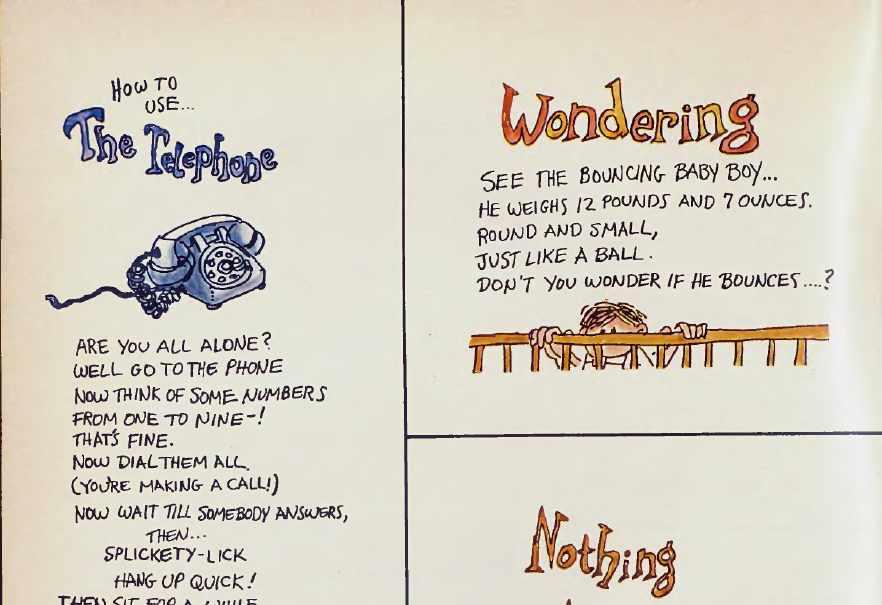 HOW TO
USE...
The Telephone
ARE YOU ALL ALONE?
WELL GO TO THE PHONE
NOW THINK OF SOME NUMBERS
FROM ONE TO NINE-!
THAT'S FINE.
NOW DIAL THEM ALL.
(YOU'RE MAKING A CALL!)
NOW WAIT TILL SOMEBODY ANSWERS,
THEN...
SPLICKETY-LICK
HANG UP QUICK!
THEN SIT FOR A WHILE
Wondering
SEE THE BOUNCING BABY BOY...
HE WEIGHS 12 POUNDS AND 7 OUNCES.
ROUND AND SMALL,
JUST LIKE A BALL.
DON'T YOU WONDER IF HE BOUNCES....?
Nothing